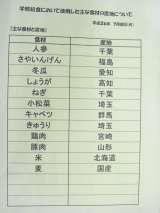 学校給食において使用した主な食材の産地について
(主な食材と産地)
食材 産地
人参 千葉
さやいんげん 福島
冬瓜 愛知
しょうが 高知
ねぎ 千葉
小松菜 埼玉
キャベツ 群馬
きゅうり 埼玉
鶏肉 宮崎
豚肉 山形
米 北海道
麦 国産